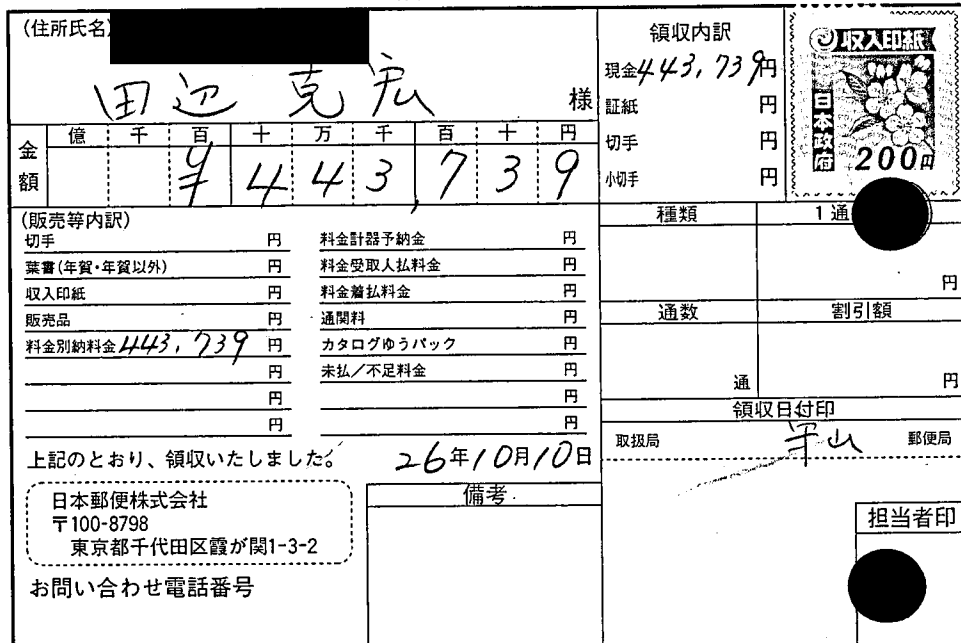 (住所氏名)
田辺 克宏 様
金額 億 千 百 十 万 千 百 十 円
¥ 4 4 3, 7 3 9
領収内訳
現金 443,739円
証紙 円
切手 円
小切手 円
収入印紙
日本政府
200円
(販売等内訳)
切手 円
葉書(年賀・年賀以外) 円
収入印紙 円
販売品 円
料金別納料金 443,739 円
円
円
円
料金計器予納金 円
料金受取人払料金 円
料金着払料金 円
通関料 円
カタログゆうパック 円
未払/不足料金 円
円
円
種類 1通
円
通数 割引額
通 円
領収日付印
取扱局 守山 郵便局
上記のとおり、領収いたしました。 26年10月10日
日本郵便株式会社
〒100-8798
東京都千代田区霞が関1-3-2
お問い合わせ電話番号
備考
担当者印